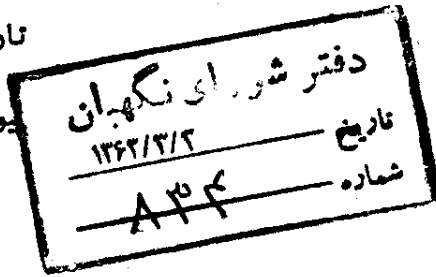 تار
دفتر شورای نگهبان
تاریخ ۱۳۶۲/۳/۲
شماره ۸۳۴